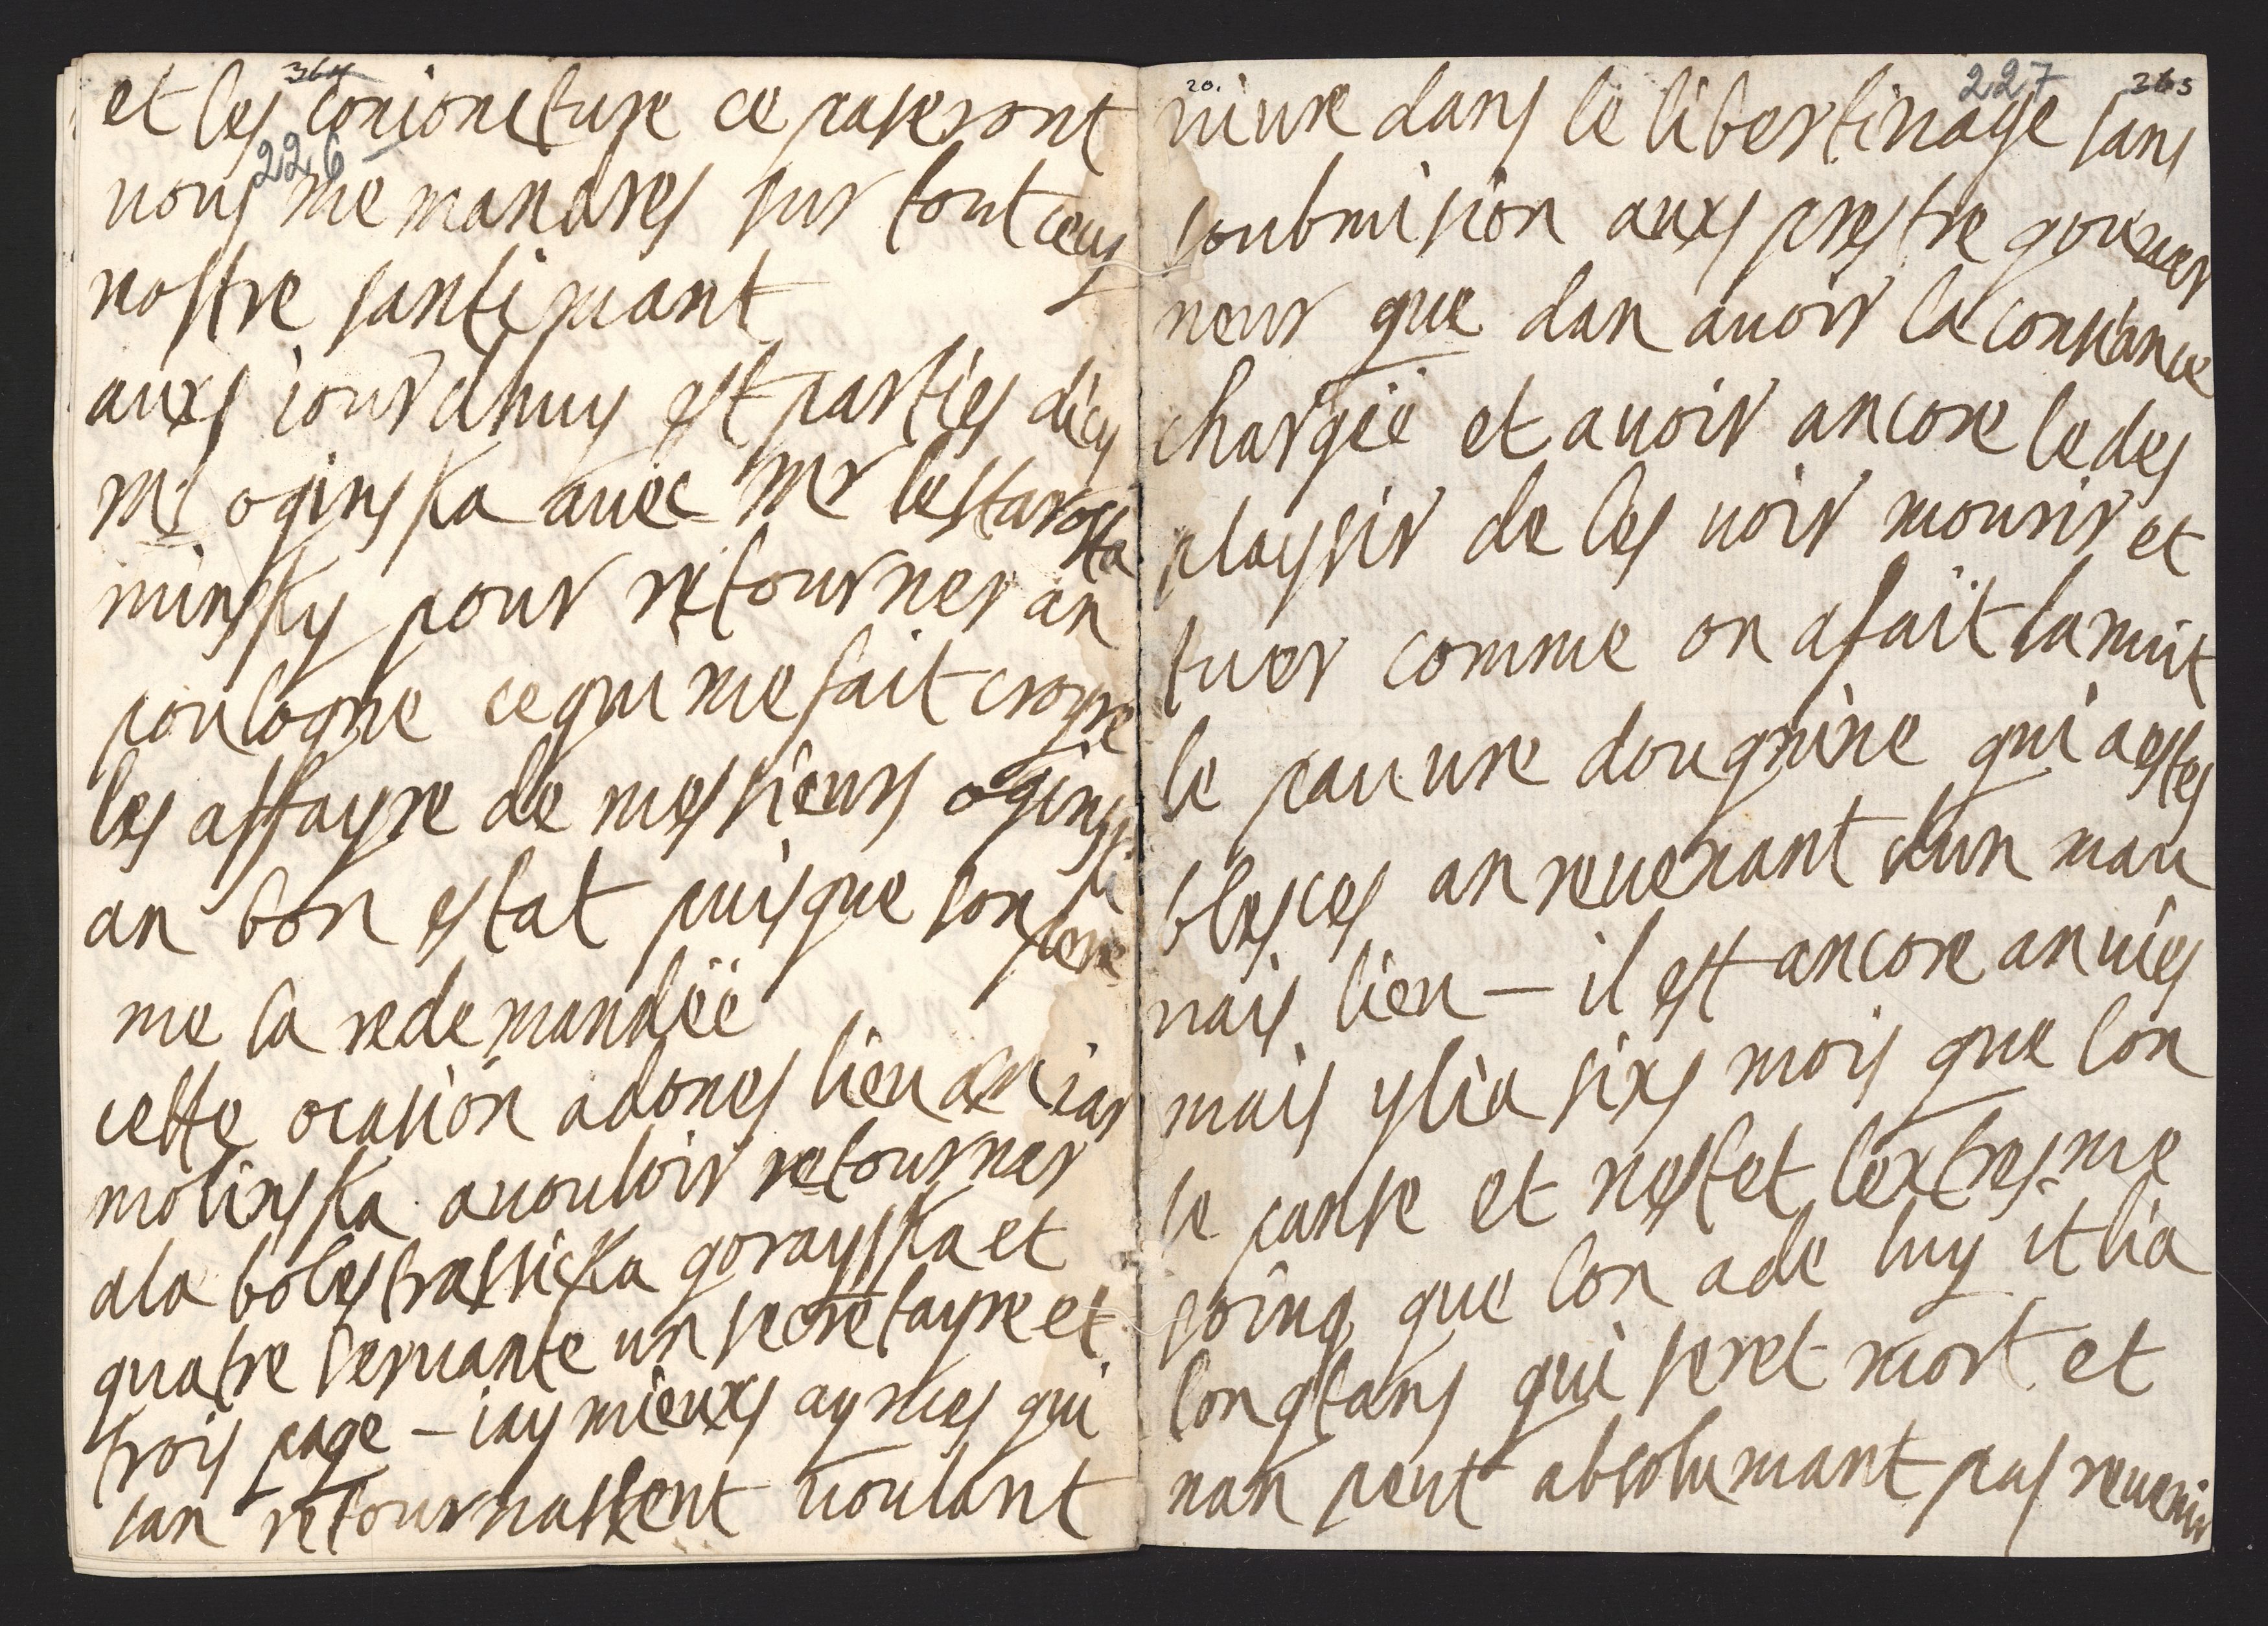 364
et les conioncture ce paseront
226
vous me mandres sur tout cecy
vostre santimant
auxs iourdhuy est parties dicy
me oginska avec mr lestarosta
minsky pour retourner an
poulogne ce qui me fait croyre
les affayre de messieurs oginski
an bon estat puisque son pere
me la redemandëë
cette ocasion adones lieu an ias
molinska avouloir retourner
ala bolestrasicka gorayska et
quatre servante un secretayre et
trois page – iay mieuxs aymes qui
san retournassent voulant
20. 227 365
vivre dans le libertinage sans
soubmision auxs prestre gouver
neur que dan avoir la consiance
chargëë et avoir ancore le des
playsir de les voir mourir et
tuer comme on a fait la nuit
le pauvre dougnine qui a estes
blesces an revenant dun mau
vais lieu – il est ancore an vies
mais ylia sixs mois que lon
le panse et nestet lextresme
soing que lon a de luy it lia
longtans qui seret mort et
nan peut absolumant pas revenir